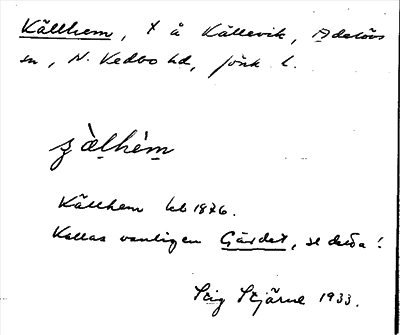 Källhem, t å Källevik, Adelövs
sn, N. Vedbo hd, Jönk l.
Källhem kb 1876.
Kallas vanligen Gärdet, se detta!
Stig Stjärne 1933.